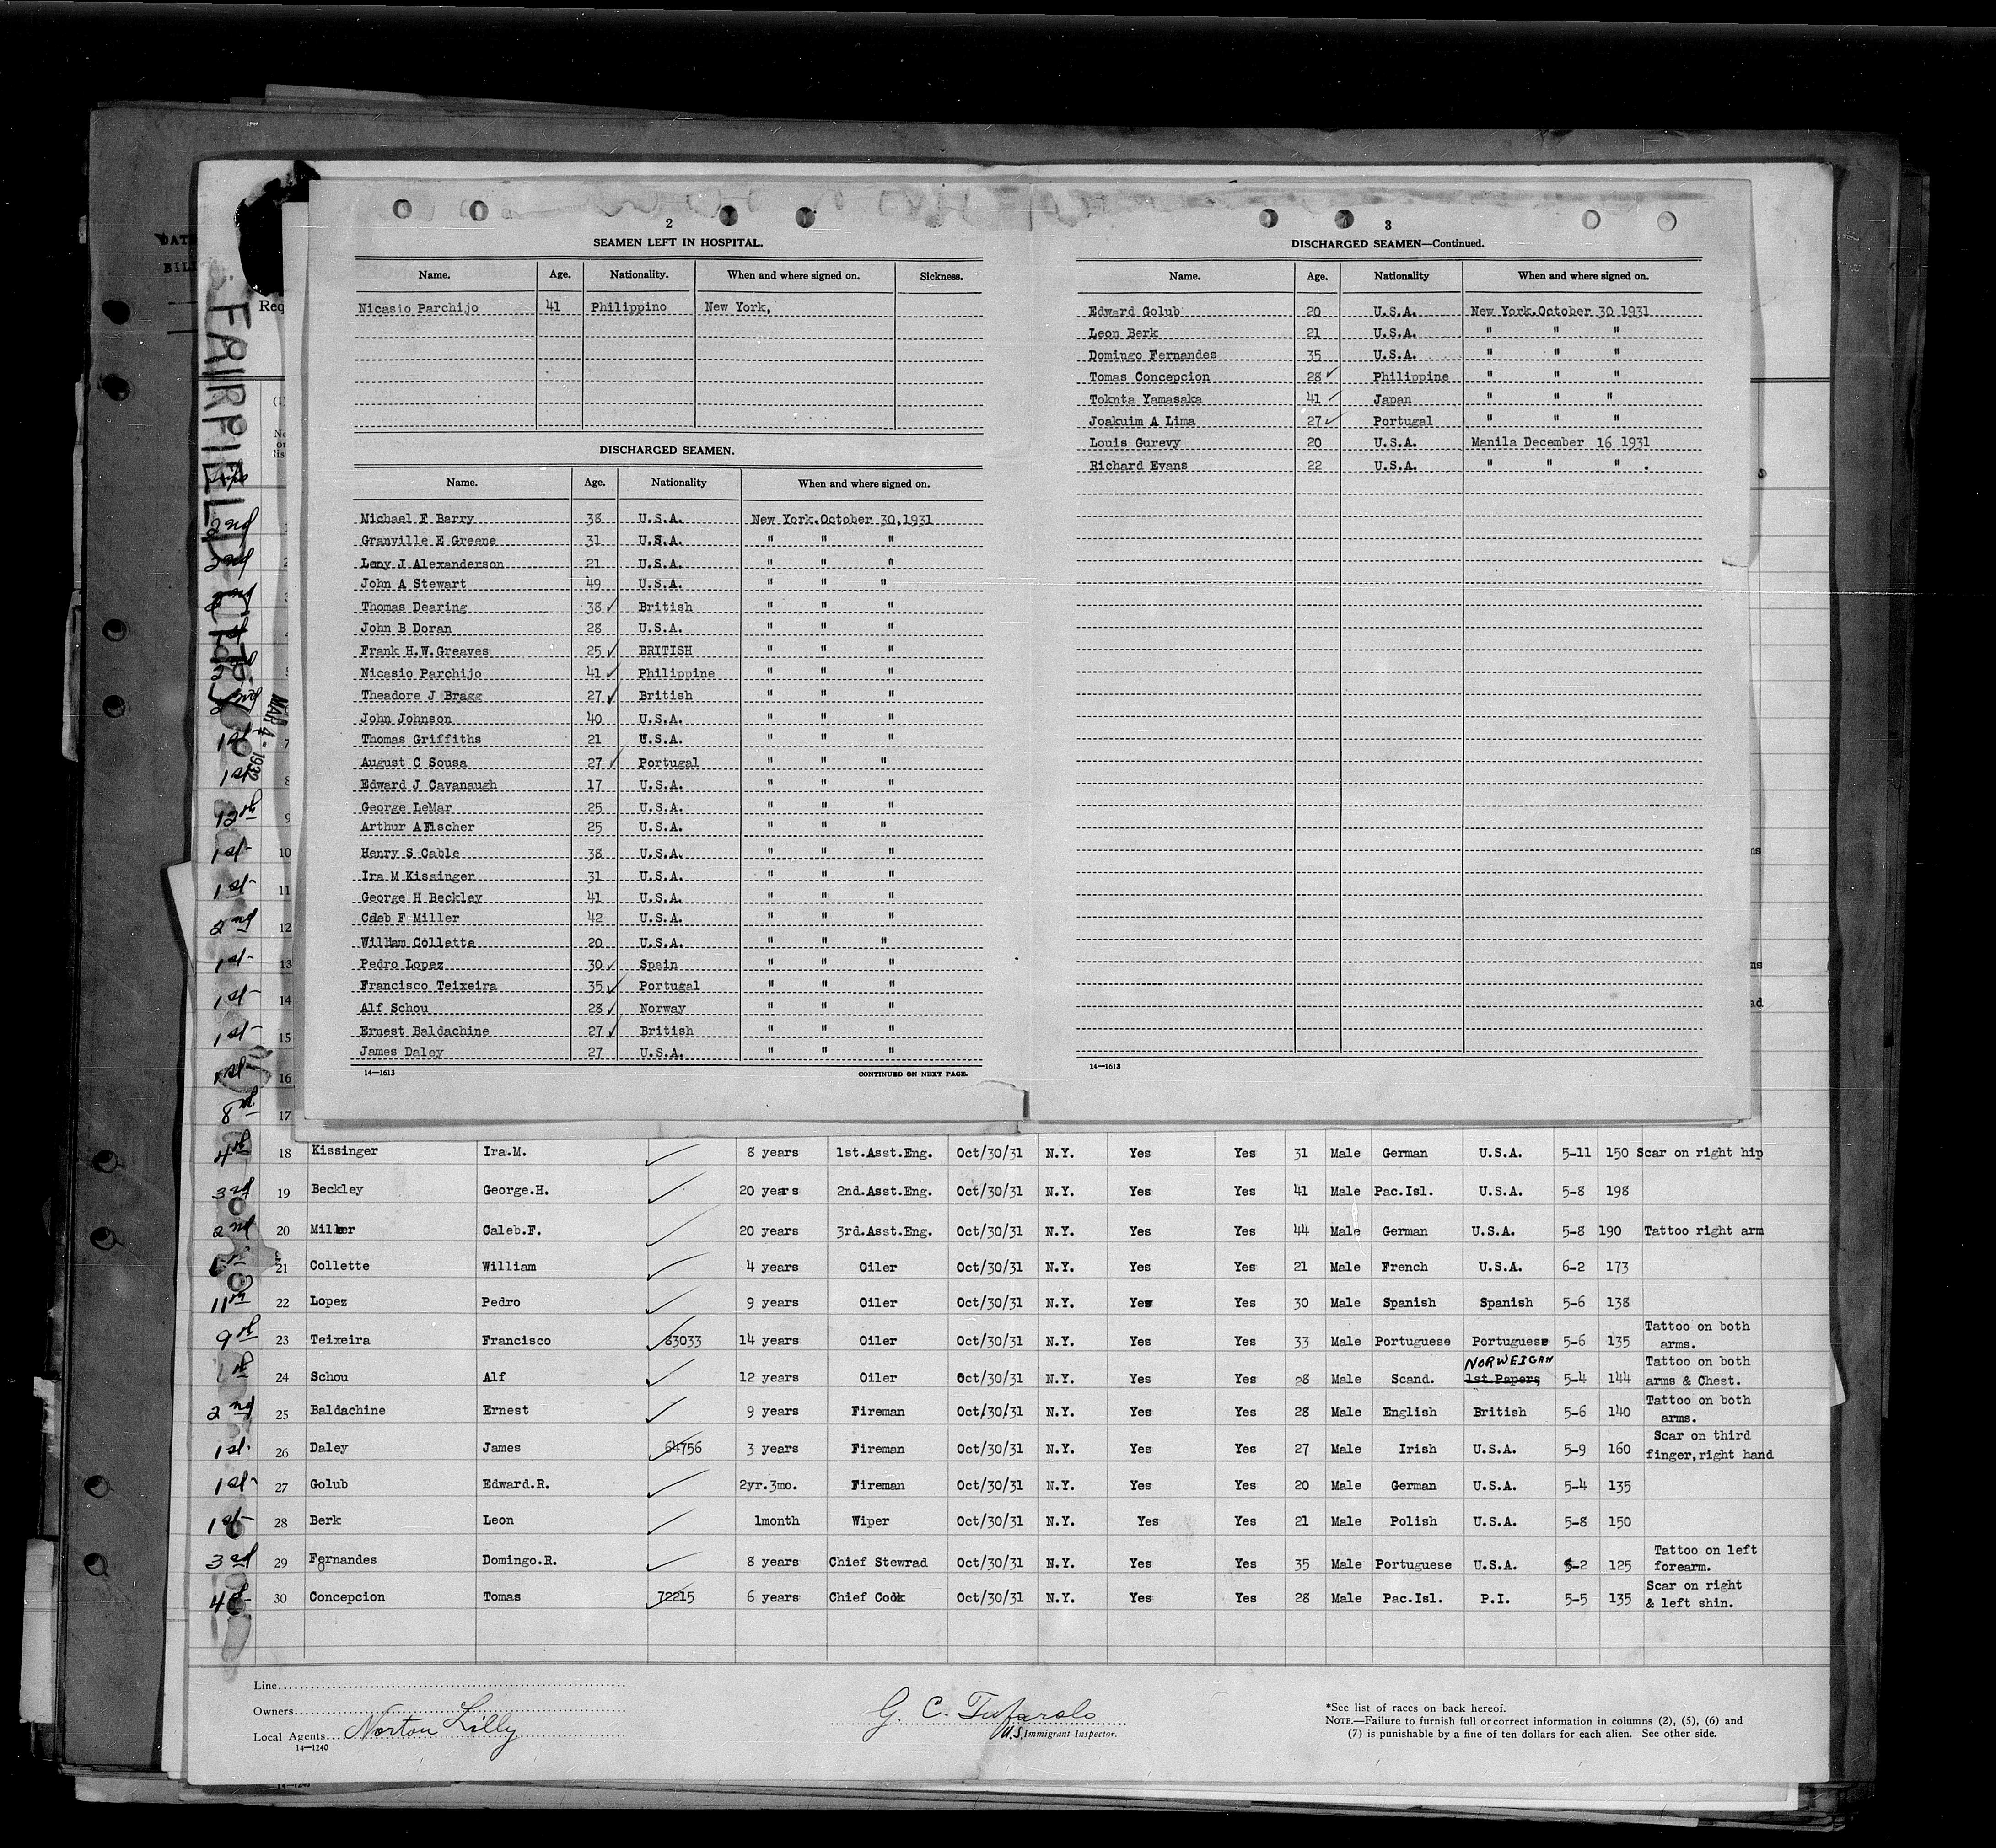 2
SEAMEN LEFT IN HOSPITAL.
Name. Age. Nationality. When and where signed on. Sickness.
Nicasio Parchijo 41 Philippino New York,
DISCHARGED SEAMEN.
Name. Age. Nationality When and where signed on.
Michael F Barry 38 U.S.A. New York.October 30,1931
Granville E Greene 31 U.S.A. " " "
Leny J Alexanderson 21 U.S.A. " " "
John A Stewart 49 U.S.A. " " "
Thomas Dearing 38 ✓ British " " "
John B Doran 28 U.S.A. " " "
Frank H.W.Greaves 25 ✓ BRITISH " " "
Nicasio Parchijo 41 ✓ Philippine " " "
Theadore J Bragg 27 ✓ British " " "
John Johnson 40 U.S.A. " " "
Thomas Griffiths 21 U.S.A. " " "
August C Sousa 27 ✓ Portugal " " "
Edward J Cavanaugh 17 U.S.A. " " "
George LeMar 25 U.S.A. " " "
Arthur A Fischer 25 U.S.A. " " "
Henry S Cable 38 U.S.A. " " "
Ira M Kissinger 31 U.S.A. " " "
George H Beckley 41 U.S.A. " " "
Caleb F Miller 42 U.S.A. " " "
William Collette 20 U.S.A. " " "
Pedro Lopez 30 ✓ Spain " " "
Francisco Teixeira 35 ✓ Portugal " " "
Alf Schou 28 ✓ Norway " " "
Ernest Baldachine 27 ✓ British " " "
James Daley 27 U.S.A. " " "
14—1613 CONTINUED ON NEXT PAGE.
3
DISCHARGED SEAMEN—Continued.
Name. Age. Nationality When and where signed on.
Edward Golub 20 U.S.A. New York.October 30 1931
Leon Berk 21 U.S.A. " " "
Domingo Fernandes 35 U.S.A. " " "
Tomas Concepcion 28 ✓ Philippine " " "
Toknta Yamasaka 41 ✓ Japan " " "
Joakuim A Lima 27 ✓ Portugal " " "
Louis Gurevy 20 U.S.A. Manila December 16 1931
Richard Evans 22 U.S.A. " " " .
14—1613
FAIRFIELD CITY
MAR 4 - 1932
Req
2nd
1st 7
1st 8
9
1st 10
1st 11
2nd 12
1st 13
1st 14
1st 15
1st 16
17
4th 18 Kissinger Ira.M. ✓ 8 years 1st.Asst.Eng. Oct/30/31 N.Y. Yes Yes 31 Male German U.S.A. 5-11 150 Scar on right hip
3rd 19 Beckley George.H. ✓ 20 years 2nd.Asst.Eng. Oct/30/31 N.Y. Yes Yes 41 Male Pac.Isl. U.S.A. 5-8 198
2nd 20 Miller Caleb.F. ✓ 20 years 3rd.Asst.Eng. Oct/30/31 N.Y. Yes Yes 44 Male German U.S.A. 5-8 190 Tattoo right arm
21 Collette William ✓ 4 years Oiler Oct/30/31 N.Y. Yes Yes 21 Male French U.S.A. 6-2 173
11th 22 Lopez Pedro ✓ 9 years Oiler Oct/30/31 N.Y. Yes Yes 30 Male Spanish Spanish 5-6 138
9th 23 Teixeira Francisco 83033 14 years Oiler Oct/30/31 N.Y. Yes Yes 33 Male Portuguese Portuguese 5-6 135 Tattoo on both arms.
24 Schou Alf ✓ 12 years Oiler Oct/30/31 N.Y. Yes Yes 28 Male Scand. NORWEIGAN 1st.Papers 5-4 144 Tattoo on both arms & Chest.
2nd 25 Baldachine Ernest ✓ 9 years Fireman Oct/30/31 N.Y. Yes Yes 28 Male English British 5-6 140 Tattoo on both arms.
1st 26 Daley James 64756 3 years Fireman Oct/30/31 N.Y. Yes Yes 27 Male Irish U.S.A. 5-9 160 Scar on third finger,right hand
1st 27 Golub Edward.R. ✓ 2yr.3mo. Fireman Oct/30/31 N.Y. Yes Yes 20 Male German U.S.A. 5-4 135
1st 28 Berk Leon ✓ 1month Wiper Oct/30/31 N.Y. Yes Yes 21 Male Polish U.S.A. 5-8 150
3rd 29 Fernandes Domingo.R. ✓ 8 years Chief Stewrad Oct/30/31 N.Y. Yes Yes 35 Male Portuguese U.S.A. 5-2 125 Tattoo on left forearm.
30 Concepcion Tomas 72215 6 years Chief Cook Oct/30/31 N.Y. Yes Yes 28 Male Pac.Isl. P.I. 5-5 135 Scar on right & left shin.
Line
Owners
Local Agents Norton Lilly
14—1240
G. C. Tufarolo
U.S. Immigrant Inspector.
*See list of races on back hereof.
NOTE.—Failure to furnish full or correct information in columns (2), (5), (6) and
(7) is punishable by a fine of ten dollars for each alien. See other side.
14—1240